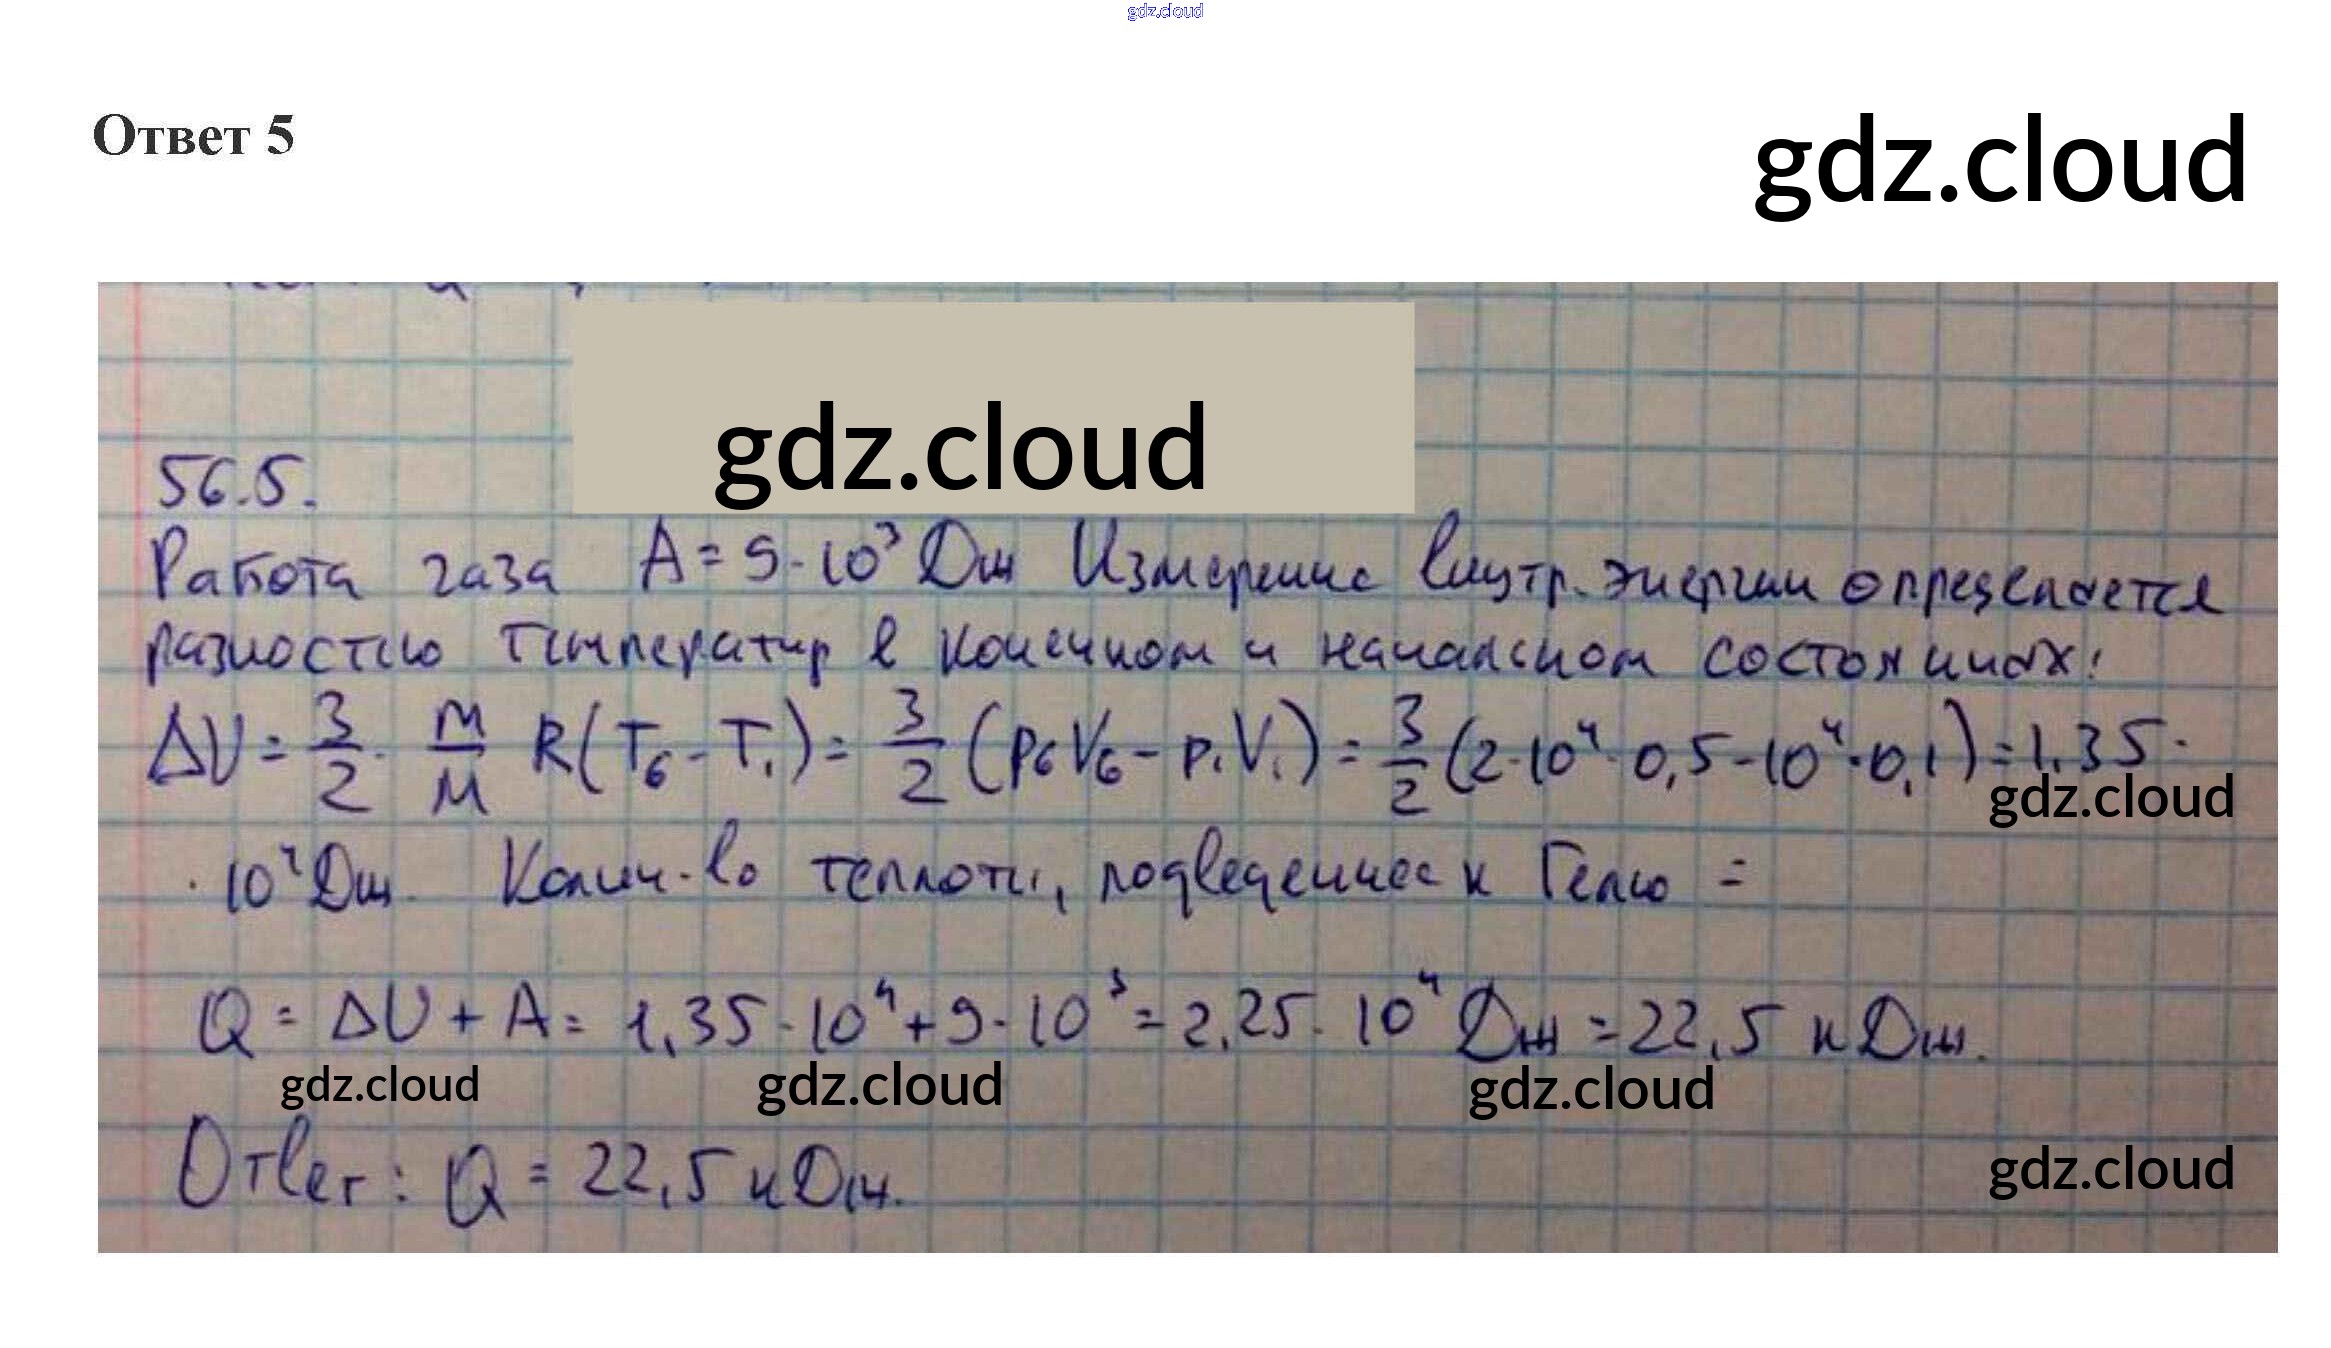 gdz.cloud
Ответ 5
gdz.cloud
gdz.cloud
56.5.
Работа газа A = 9·10³ Дж Измерение внутр. энергии определяется
разностью температур в конечном и начальном состояниях:
ΔU = 3/2 · m/M R(T₆ - T₁) = 3/2 (p₆V₆ - p₁V₁) = 3/2 (2·10⁴·0,5 - 10⁴·0,1) = 1,35·
gdz.cloud
·10⁴ Дж. Колич-во теплоты, подведенное к Гелию =
Q = ΔU + A = 1,35·10⁴ + 9·10³ = 2,25·10⁴ Дж = 22,5 кДж.
gdz.cloud gdz.cloud gdz.cloud
Ответ: Q = 22,5 кДж.
gdz.cloud